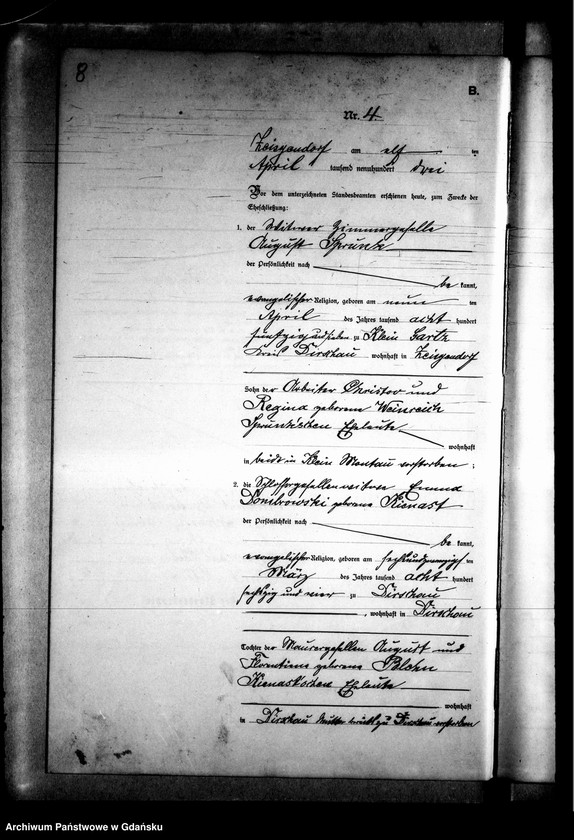 8
B.
Nr. 4.
Zeisgendorf am elf ten
April tausend neunhundert drei
Vor dem unterzeichneten Standesbeamten erschienen heute, zum Zwecke der
Eheschließung:
1. der Witwer Zimmergeselle
August Sprunk
der Persönlichkeit nach
be kannt,
evangelischer Religion, geboren am neun ten
April des Jahres tausend acht hundert
fünfzig und sieben zu Klein Gartz
Kreis Dirschau wohnhaft in Zeisgendorf
Sohn der Arbeiter Christov und
Regina geborene Weinreich
Sprunkschen Eheleute
wohnhaft
in beide in Klein Montau verstorben;
2. die Schlossergesellenwitwe Emma
Dombrowski geborene Kienast
der Persönlichkeit nach
be kannt,
evangelischer Religion, geboren am sechsundzwanzigs ten
März des Jahres tausend acht hundert
sechszig und vier zu Dirschau
, wohnhaft in Dirschau
Tochter der Maurergesellen August und
Florentine geborene
Kienastschen Eheleute
wohnhaft
in Dirschau zu Dirschau verstorben
Archiwum Państwowe w Gdańsku